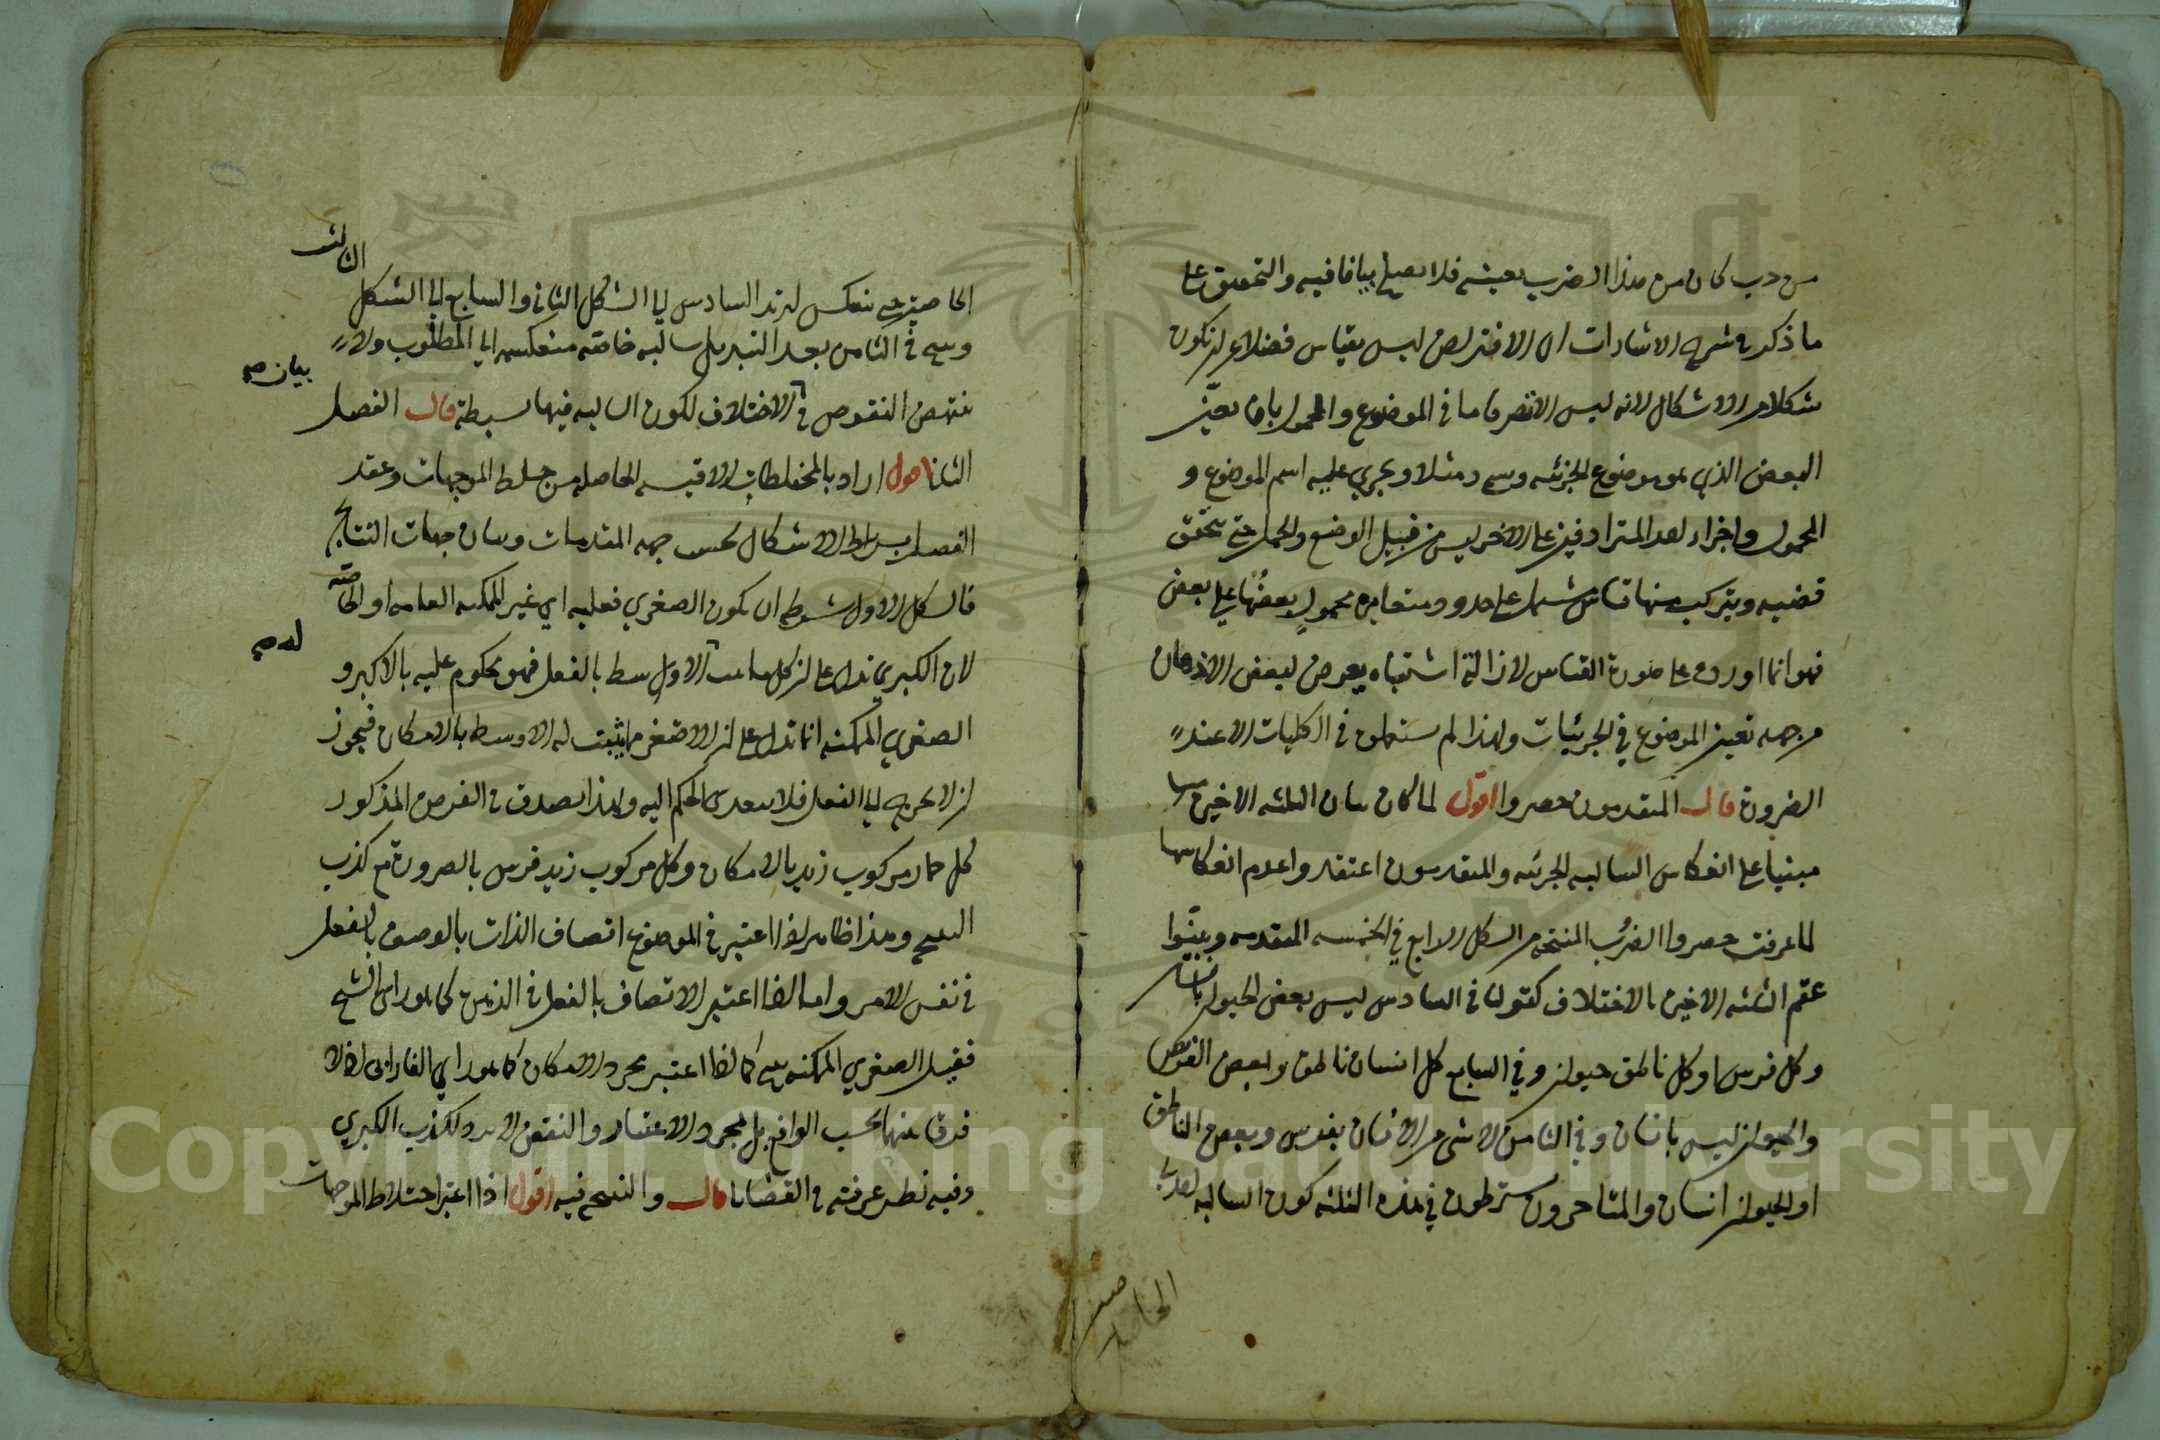 من حيث كان من هذا الضرب بعينه فلا يصلح بيانا فيه والتحقيق على
ما ذكر في شرح الاشارات ان الافتراض ليس بقياس فضلا عن ان يكون
شكلا من الاشكال لانه ليس الا تصرفا ما في الموضوع والمحمول بان يعيّن
البعض الذي هو موضوع الجزئيه وسمي د مثلا ويجري عليه اسم الموضوع و
المحمول واجراء احد المترادفين على الاخر ليس من قبيل الوضع والحمل حتى تتحقق
قضيه ويتركب منها قياس مشتمل على حدود متغايره محمولٍ بعضُها على بعض
فهو انما اورد على صورة القياس لازالة اشتباه يعرض لبعض الاذهان
من جهه تعين الموضوع في الجزئيات ولهذا لم يستعمل في الكليات الا عند
الضرورة قال المتقدمون حصروا اقول لما كان بيان الثلثه الاخيره منها
مبنيا على انعكاس السالبه الجزئيه والمتقدمون اعتقدوا عدم انعكاسها
لما عرفت حصروا الضرب المنتجه من الشكل الرابع في الخمسه المتقدمه وبيّنوا
عقم الثلثه الاخيره بالاختلاف كقولنا في السادس ليس بعض الحيوان بانسان
وكل فرس او كل ناطق حيوان وفي السابع كل انسان ناطق وبعض الفرس
والحيوان ليس بانسان وفي الثامن لا شي من الانسان بفرس وبعض الناطق
او الحيوان انسان والمتاخرون يشترطون في هذه الثلثه كون السالبه احدى
الخاصتين
الخاصتين حتى ينعكس ليرتد السادس الى الشكل الثاني والسابع الى الشكل
الثالث
وينتج في الثامن بعد التبديل سالبه خاصه منعكسه الى المطلوب ولا
ينتهض النقوض في الاختلاف لكون السالبه فيها بسيطة قال الفصل
بيان صح
الثاني اقول اراد بالمختلطات الاقيسه الحاصله من خلط الموجهات وعقد
الفصل شرايط الاشكال بحسب جهه المقدمات وبيان جهات النتايج
فالشكل الاول شرطه ان يكون الصغري فعليه اي غير الممكنه العامه او الخاصه
لان الكبري تدل على ان كل ما ثبت الاوسط بالفعل فهو محكوم عليه بالاكبر و
له صح
الصغري الممكنه انما تدل على ان الاصغر مما يثبت له الاوسط بالامكان فيجوز
ان لا يخرج الى الفعل فلا يتعدى الحكم اليه ولهذا يصدق في الفرض المذكور
كل حمار مركوب زيد بالامكان وكل مركوب زيد فرس بالضرورة مع كذب
النتيجه وهذا ظاهر اذا اعتبر في الموضوع اتصاف الذات بالوصف بالفعل
في نفس الامر واما اذا اعتبر الاتصاف بالفعل في الذهن كما هو راي الشيخ
فقيل الصغري الممكنه ينتج كما اذا اعتبر مجرد الامكان كما هو راي الفارابى اذ لا
فرق بينهما بحسب الواقع بل بمجرد الاعتبار والنقض لا يرد لكذب الكبري
وفيه نظر عرفته في القضايا قال والنتيجه فيه اقول اذا اعتبر اختلاط الموجهات
Copyright © King Saud University